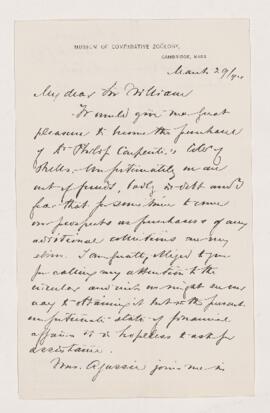 MUSEUM OF COMPARATIVE ZOOLOGY,
CAMBRIDGE, MASS
March 29/74
My dear Sir William
It would give me great
pleasure to become the purchaser
of Dr Philip Carpenter's Coll. of
Shells. Unfortunately we are
out of funds, badly in debt and I
fear that for some time to come
our prospects as purchasers of any
additional collections are very
slim. I am greatly obliged to you
for calling my attention to the
circular and wish we might see our
way to obtaining it but in the present
unfortunate state of financial
affairs it is hopeless to ask for
assistance.
Mrs. Agassiz joins me in